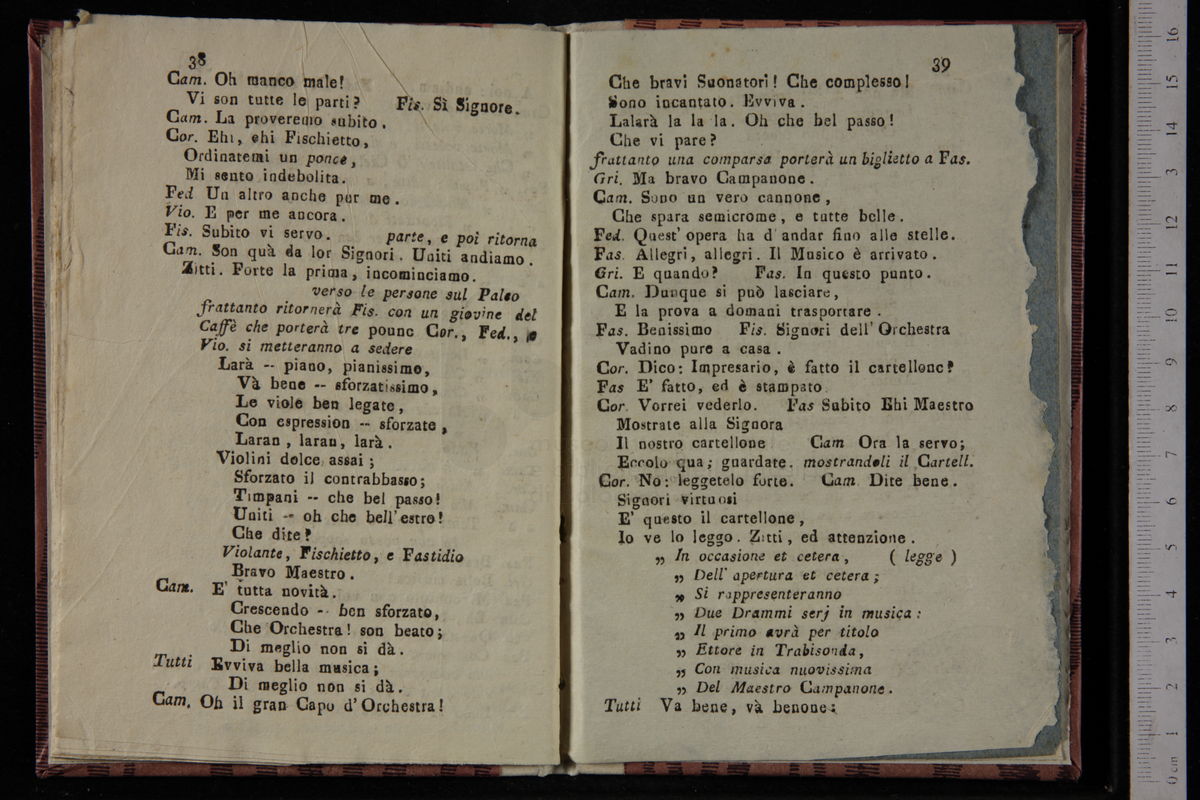 38
Cam. Oh manco male!
Vi son tutte le parti? Fis. Sì Signore.
Cam. La proveremo subito.
Cor. Ehi, ehi Fischietto,
Ordinatemi un ponce,
Mi sento indebolita.
Fed Un altro anche per me.
Vio. E per me ancora.
Fis. Subito vi servo. parte, e poi ritorna
Cam. Son quà da lor Signori. Uniti andiamo.
Zitti. Forte la prima, incominciamo.
verso le persone sul Palco
frattanto ritornerà Fis. con un giovine del
Caffè che porterà tre pounc Cor., Fed., e
Vio. si metteranno a sedere
Larà -- piano, pianissimo,
Và bene -- sforzatissimo,
Le viole ben legate,
Con espression -- sforzate,
Laran, laran, larà.
Violini dolce assai;
Sforzato il contrabbasso;
Timpani -- che bel passo!
Uniti -- oh che bell'estro!
Che dite?
Violante, Fischietto, e Fastidio
Bravo Maestro.
Cam. E' tutta novità.
Crescendo -- ben sforzato,
Che Orchestra! son beato;
Di meglio non si dà.
Tutti Evviva bella musica;
Di meglio non si dà.
Cam. Oh il gran Capo d'Orchestra!
39
Che bravi Suonatori! Che complesso!
Sono incantato. Evviva.
Lalarà la la la. Oh che bel passo!
Che vi pare?
frattanto una comparsa porterà un biglietto a Fas.
Gri. Ma bravo Campanone.
Cam. Sono un vero cannone,
Che spara semicrome, e tutte belle.
Fed. Quest' opera ha d'andar fino alle stelle.
Fas. Allegri, allegri. Il Musico è arrivato.
Gri. E quando? Fas. In questo punto.
Cam. Dunque si può lasciare,
E la prova a domani trasportare.
Fas. Benissimo Fis. Signori dell' Orchestra
Vadino pure a casa.
Cor. Dico: Impresario, è fatto il cartellone?
Fas E' fatto, ed è stampato.
Cor. Vorrei vederlo. Fas Subito Ehi Maestro
Mostrate alla Signora
Il nostro cartellone Cam Ora la servo;
Eccolo qua; guardate. mostrandoli il Cartell.
Cor. No: leggetelo forte. Cam. Dite bene.
Signori virtuosi
E' questo il cartellone,
Io ve lo leggo. Zitti, ed attenzione.
„ In occasione et cetera, ( legge )
„ Dell' apertura et cetera;
„ Si rappresenteranno
„ Due Drammi serj in musica:
„ Il primo avrà per titolo
„ Ettore in Trabisonda,
„ Con musica nuovissima
„ Del Maestro Campanone.
Tutti Va bene, và benone:
0 cm 1 2 3 4 5 6 7 8 9 10 11 12 13 14 15 16